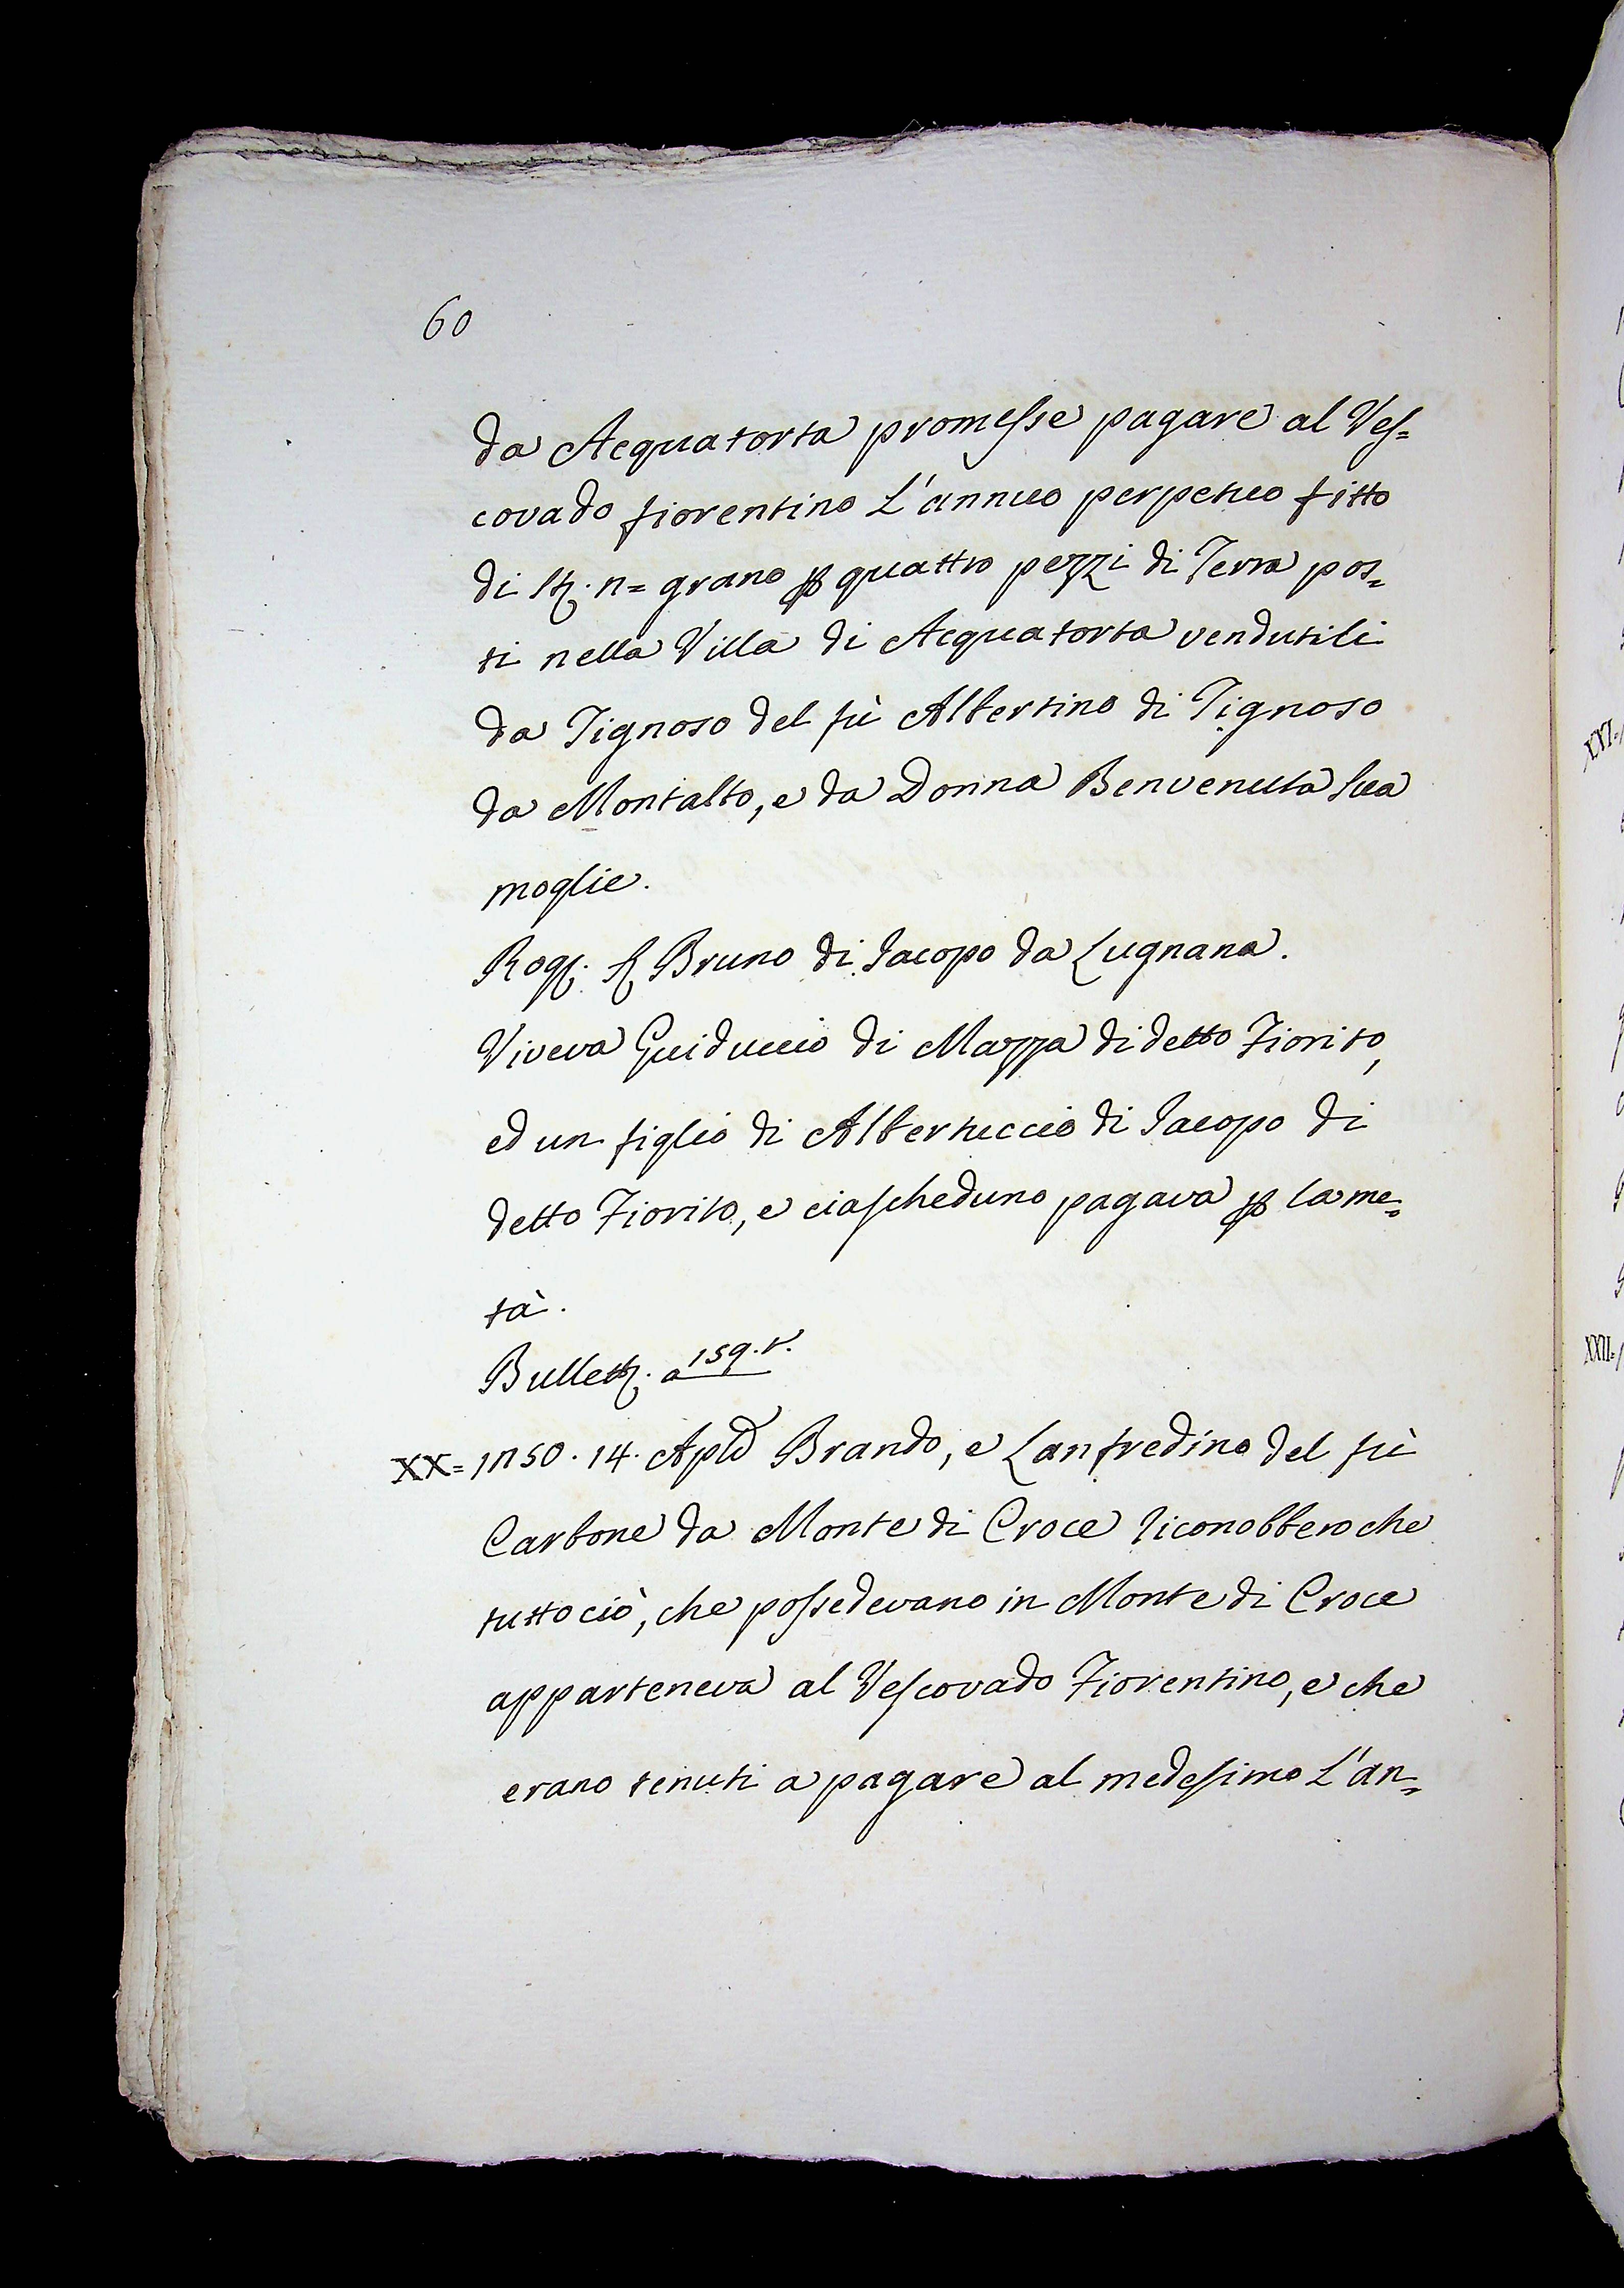 60
da Acquatorta promesse pagare al Ves=
covado fiorentino L'annuo perpetuo fitto
di st. n= grano p quattro pezzi di Terra pos=
ti nella Villa di Acquatorta vendutili
da Tignoso del fù Albertino di Tignoso
da Montalto, e da Donna Benvenuta sua
moglie.
Rog. S Bruno di Jacopo da Lugnana.
Viveva Guiduccio di Mazza di detto Fiorito,
ed un figlio di Albertuccio di Jacopo di
detto Fiorito, e ciascheduno pagava p la me=
tà.
Bullett. a 159. v.
XX= 1n50. 14. Aple Brando, e Lanfredino del fù
Carbone da Monte di Croce riconobbero che
tutto ciò, che possedevano in Monte di Croce
apparteneva al Vescovado Fiorentino, e che
erano tenuti a pagare al medesimo L'an=
XXI=
XXII=